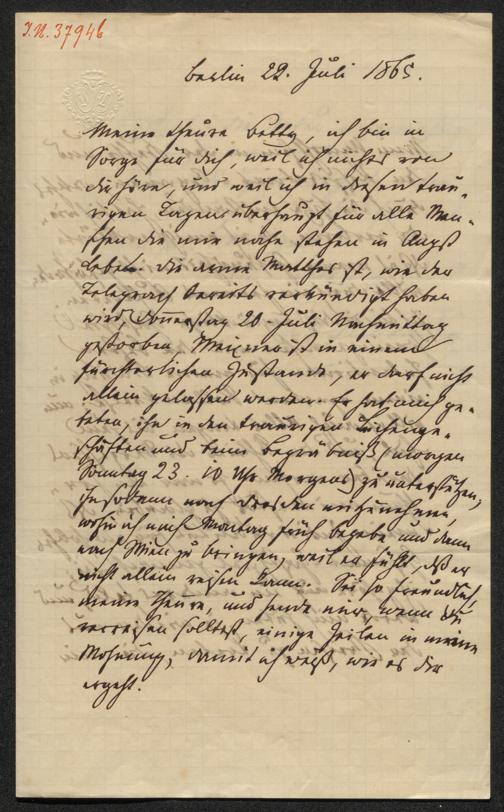 J.N. 37946
Berlin 22. Juli 1865.
Meine theure Betty, ich bin in
Sorge für dich, weil ich nichts von
dir höre, und weil ich in diesen trau-
rigen Tagen überhaupt für alle Men-
schen die mir nahe stehen in Angst
lebe. die arme ist, wie der
Telegraph bereits verkündigt haben
wird, Donnerstag 20. Juli Nachmittag
gestorben, ist in einem
fürchterlichen Zustande, er darf nicht
allein gelassen werden. Er hat mich ge-
beten, ihn in den traurigen Leichenge-
schäften und beim Begräbniß (morgen
Sonntag 23. 10 Uhr Morgens) zu unterstützen,
ihn sodann nach Dresden mitzunehmen,
wohin ich mich Montag früh begebe und dann
nach Wien zu bringen, weil er fühlt, daß er
nicht allein reisen kann. Sei so freundlich,
meine Theure, und sende mir, wenn du
verreisen solltest, einige Zeilen in meine
Wohnung, damit ich weiß, wie es dir
ergeht.